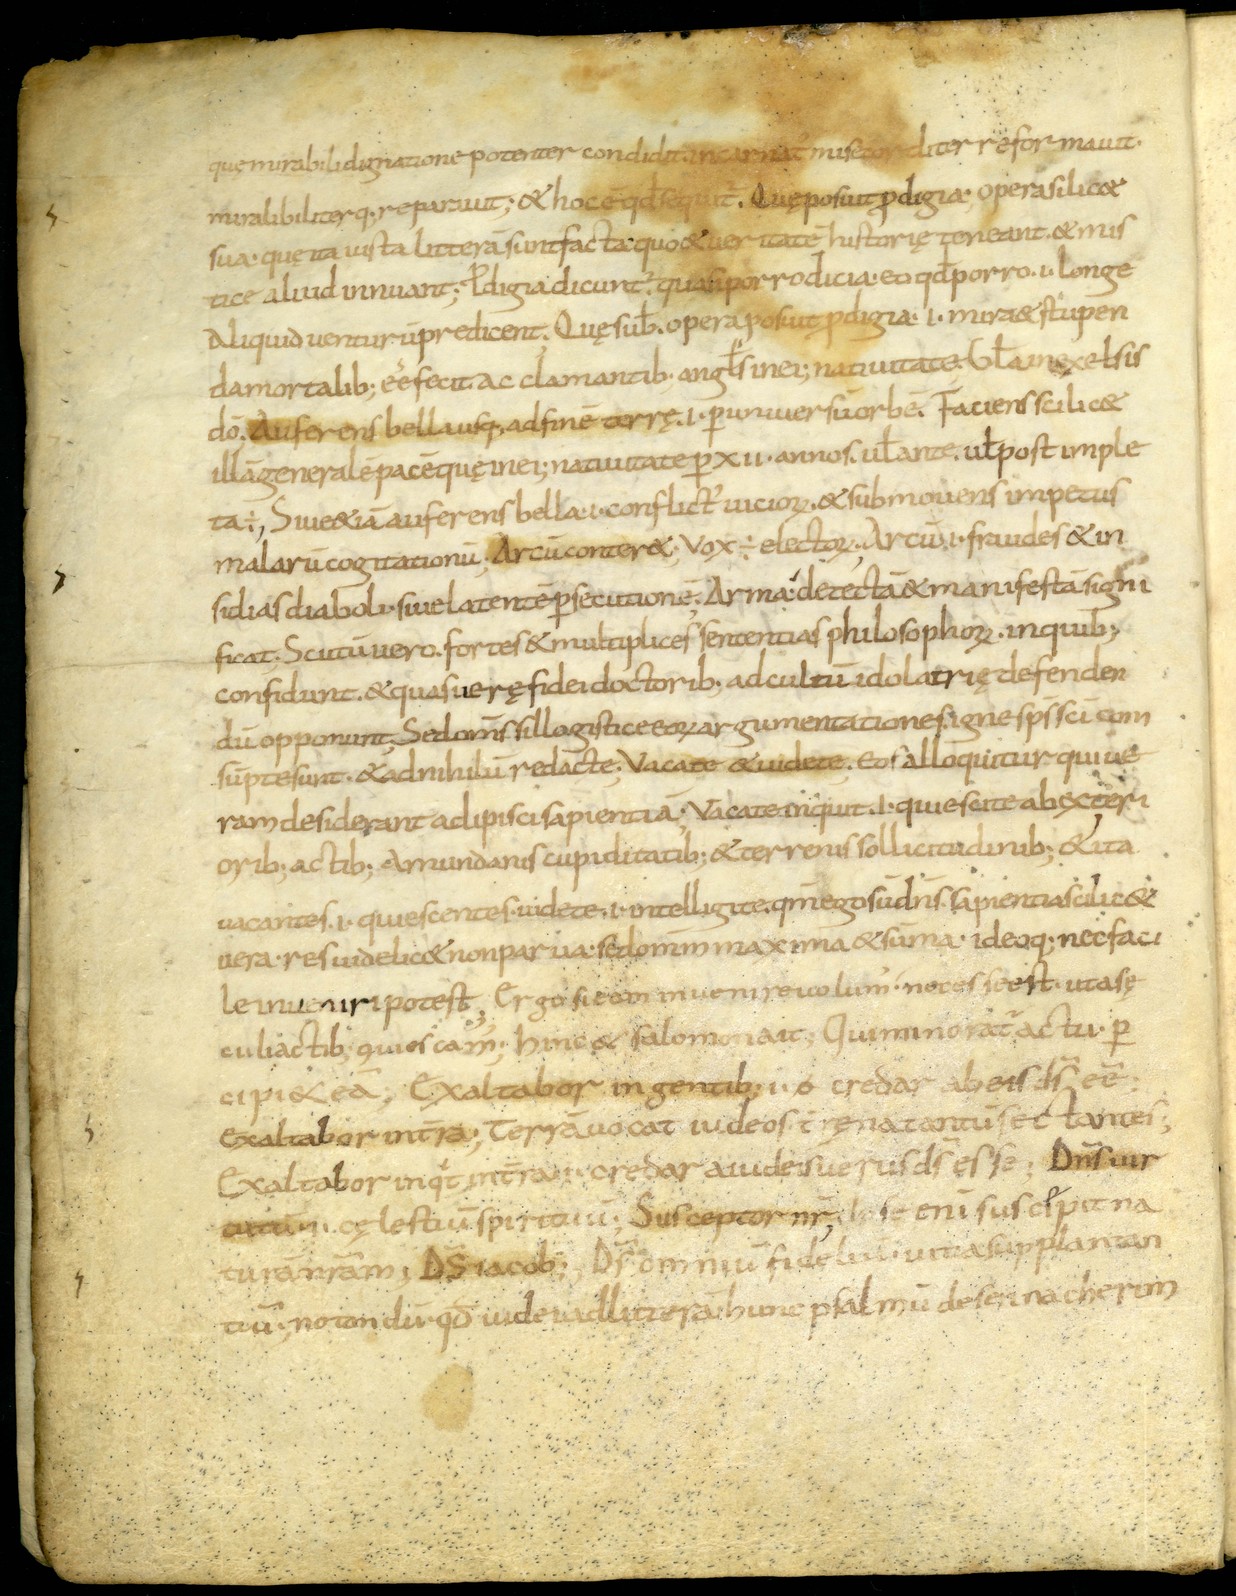 quę mirabili dignatione potenter condidit. incarnat᾽ misericorditer reformauit.
miralibiliterq. reparauit; & hoc ē qđ sequit᷑. Quę posuit ꝓdigia; opera silic&
sua. quę ita iuxta litterā sunt facta. quo & ueritatē historię teneant. & mis
tice aliud innuant; Ꝓdigia dicunt᷑. quasi porro dicia. eo qđ porro .i. longe
Aliquid uenturū predicent; Quę sub. opera posuit ꝓdigia. i. mira & stupen
da mortalib; éé fecit. ac clamantib. angłis in ei; natiuitate. Gła in excelsis
dō. Auferens bella usq; ad finē terrę. i. ꝑ uniuersū orbē. Faciens scilic&
illā generalē pacē quę in ei; natiuitate ꝑ xii. annos. uł ante. uł post imple
ta ÷; Siue &iā auferens bella. i. conflict᾽ uicioꝝ. & submouens impetus
malarū cogitationū; Arcū conter&; Vox ÷ electoꝝ; Arcū. i. fraudes & in
sidias diaboli. siue latentē ꝑsecutionē; Arma. detectā & manifestā signi
ficat. Scutū uero. fortes & multiplices sententias philosophoꝝ. in quib;
confidunt. & quas uerę fidei doctorib; ad cultū idolatrię defenden
dū opponunt; Sed om̄s sillogisticeeoꝝ argumentationes. igne sp̄s sc̄i com
sūpte sunt. & ad nihilū redacte; Vacate & uidete. Eos alloquitur qui ue
ram desiderant adipisci sapientiā; Vacate inquit. i. quiescite ab exteri
orib; actib; A mundanis cupiditatib; & terrenis sollicitudinib; & ita
uacantes. i. quiescentes. uidete. i. intelligite. qm̄ ego sū dn̄s. sapientia scilic&
uera. res uidelic& non parua. sed omim maxima & sūma. ideoq; nec faci
le inueniri potest; Ergo si eam inuenire uolum᾽. necesse est. ut a sę
culi actib; quiescam᾽; hinc & salomon ait; Qui minorat᷑ actu. ꝑ
cipi& eā; Exaltabor in gentib; i. o credar ab eis ds̄ eē;
Exaltabor in t̄ra; Terrā uocat iudeos t̄ręna tantū sectantes;
Exaltabor inq̇t in t̄ra .i. credar a iudeis uerus ds̄ esse; Dn̄s uir
tutū. i. cęlestiū spirituū; Susceptor nr̄; Ipse enī suscepit na
turā nrām; DS̄ iacob; Ds̄ omniū fideliū. uitia supplantan
tiū; notandū. qđ iudei ad litterā hunc psalmū de sennacherim